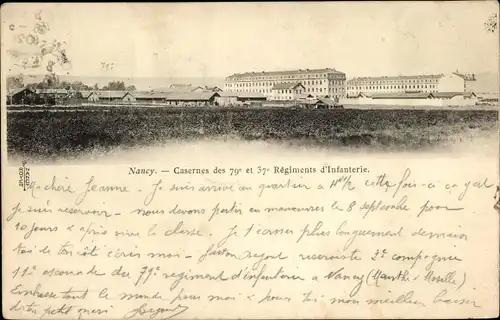 Nancy. — Casernes des 79e et 37e Régiments d'Infanterie.
Ma chère Jeanne. Je suis arrivé au quartier à 4h ½ cette fois-ci ça y est
je suis réserviste. nous devons partir en manœuvres le 8 septembre pour
10 jours après vive la classe. J'écrirai plus longuement demain
toi de ton côté écris moi — réserviste 3e compagnie
11e escouade du 79e régiment d'infanterie à Nancy (Meurthe & Moselle)
Embrasse tout le monde pour moi pour toi mon meilleur baiser
de ton petit